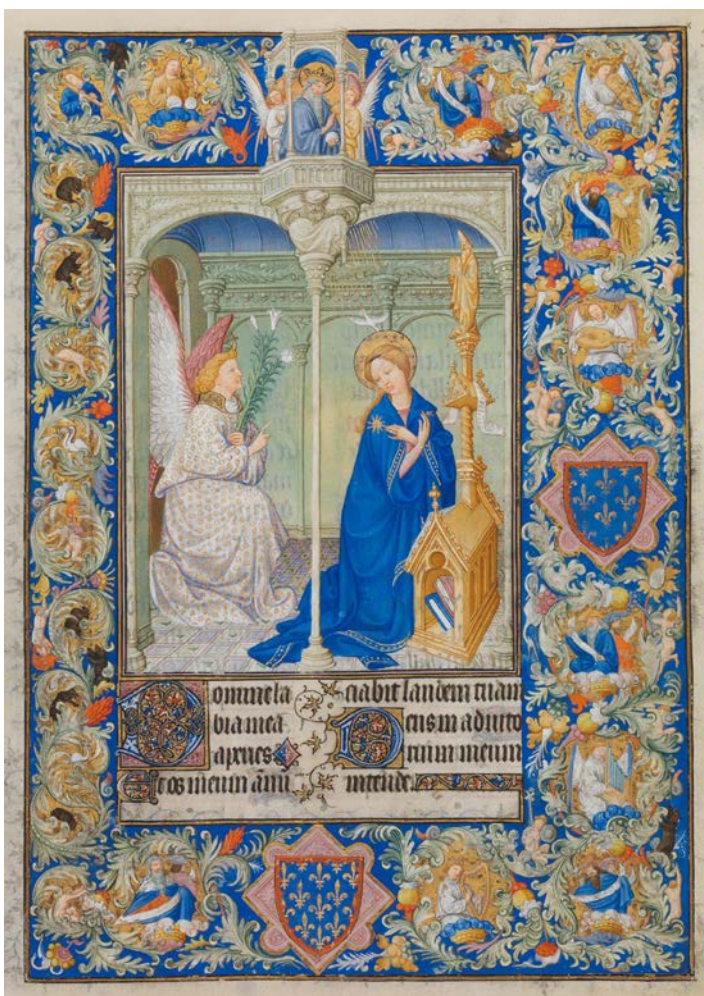 Domine la
bia mea
aperies
Et os meum ānū
ciabit laudem tuam
Deus in adiuto
rium meum
intende.